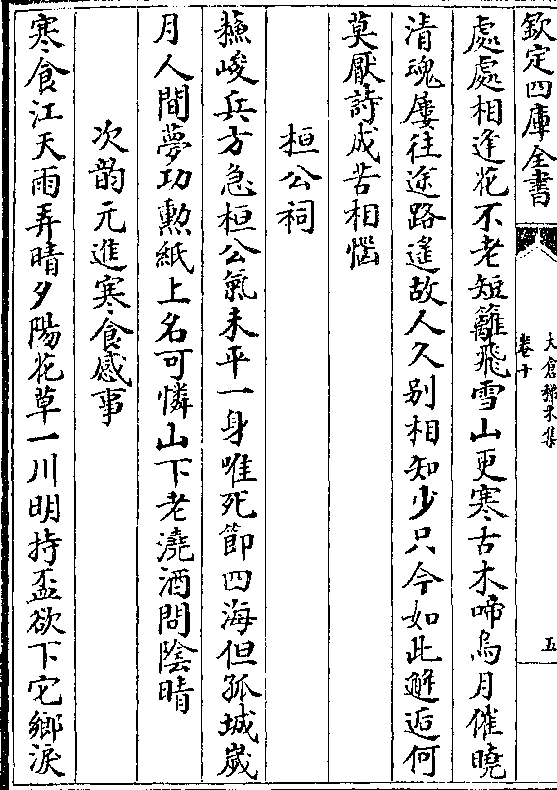 欽定四庫全書
太倉稊米集
卷十
五
處處相逢花不老短籬飛雪山更寒古木啼烏月催曉
清魂屢往途路遙故人久别相知少只今如此邂逅何
莫厭詩成苦相惱
桓公祠
蘇峻兵方急桓公氣未平一身唯死節四海但孤城歲
月人間夢功勲紙上名可憐山下老澆酒問陰晴
次韵元進寒食感事
寒食江天雨弄晴夕陽花草一川明持盃欲下它鄉淚